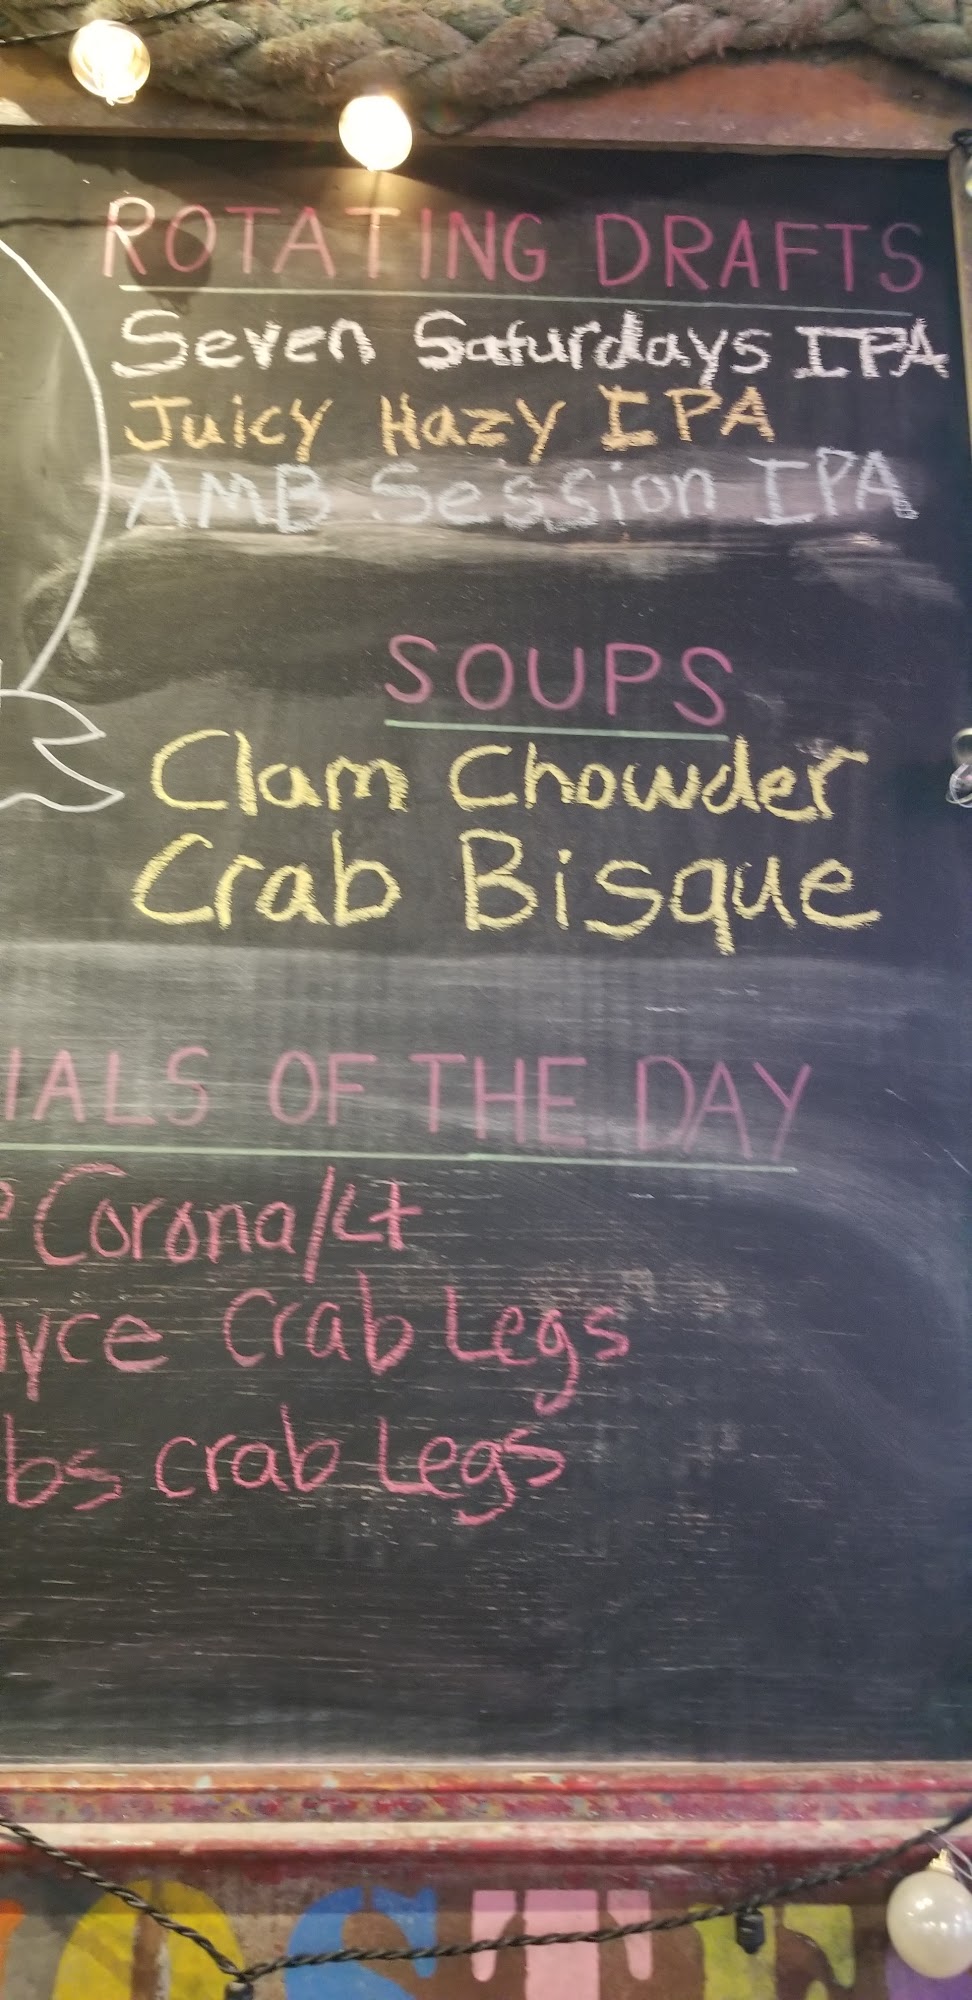 ROTATING DRAFTS
Seven Saturdays IPA
Juicy Hazy IPA
AMB Session IPA
SOUPS
Clam Chowder
Crab Bisque
IALS OF THE DAY
Corona/Lt
ayce Crab Legs
bs crab Legs
OSTE